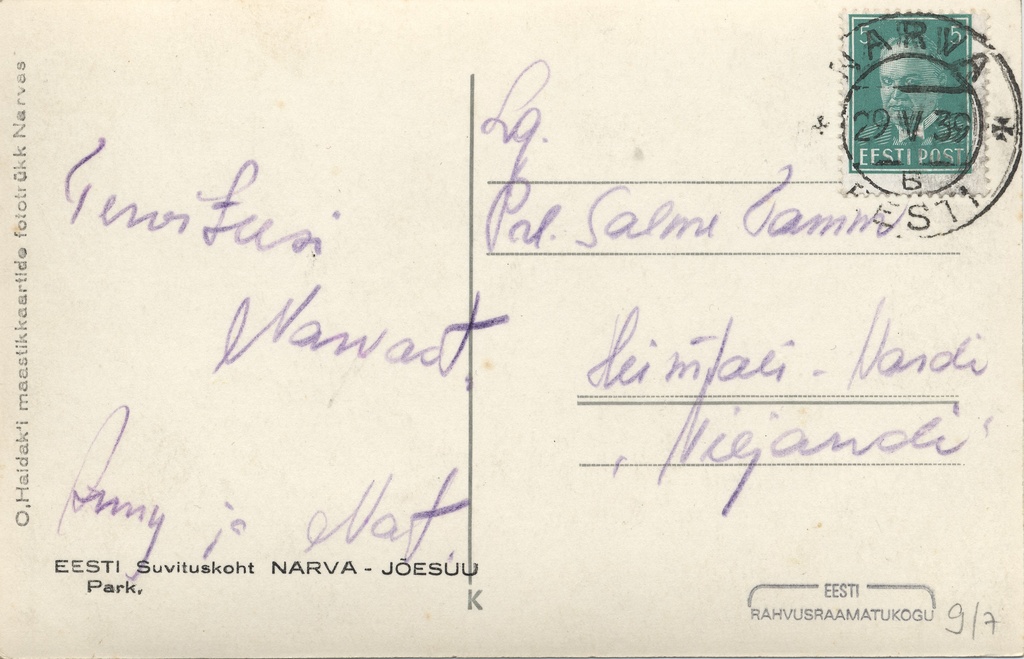 O. Haidak'i maastikkaartide fototrükk Narvas
Tervitusi
Narvast.
Anny ja
EESTI Suvituskoht NARVA - JÕESUU
Park,
K
Lg.
Prl. Salme Tamm
Heimtali - Nardi
Viljandi
5 5
EESTI POST
NARVA
29 V 39
B
EESTI
EESTI
RAHVUSRAAMATUKOGU
9/7